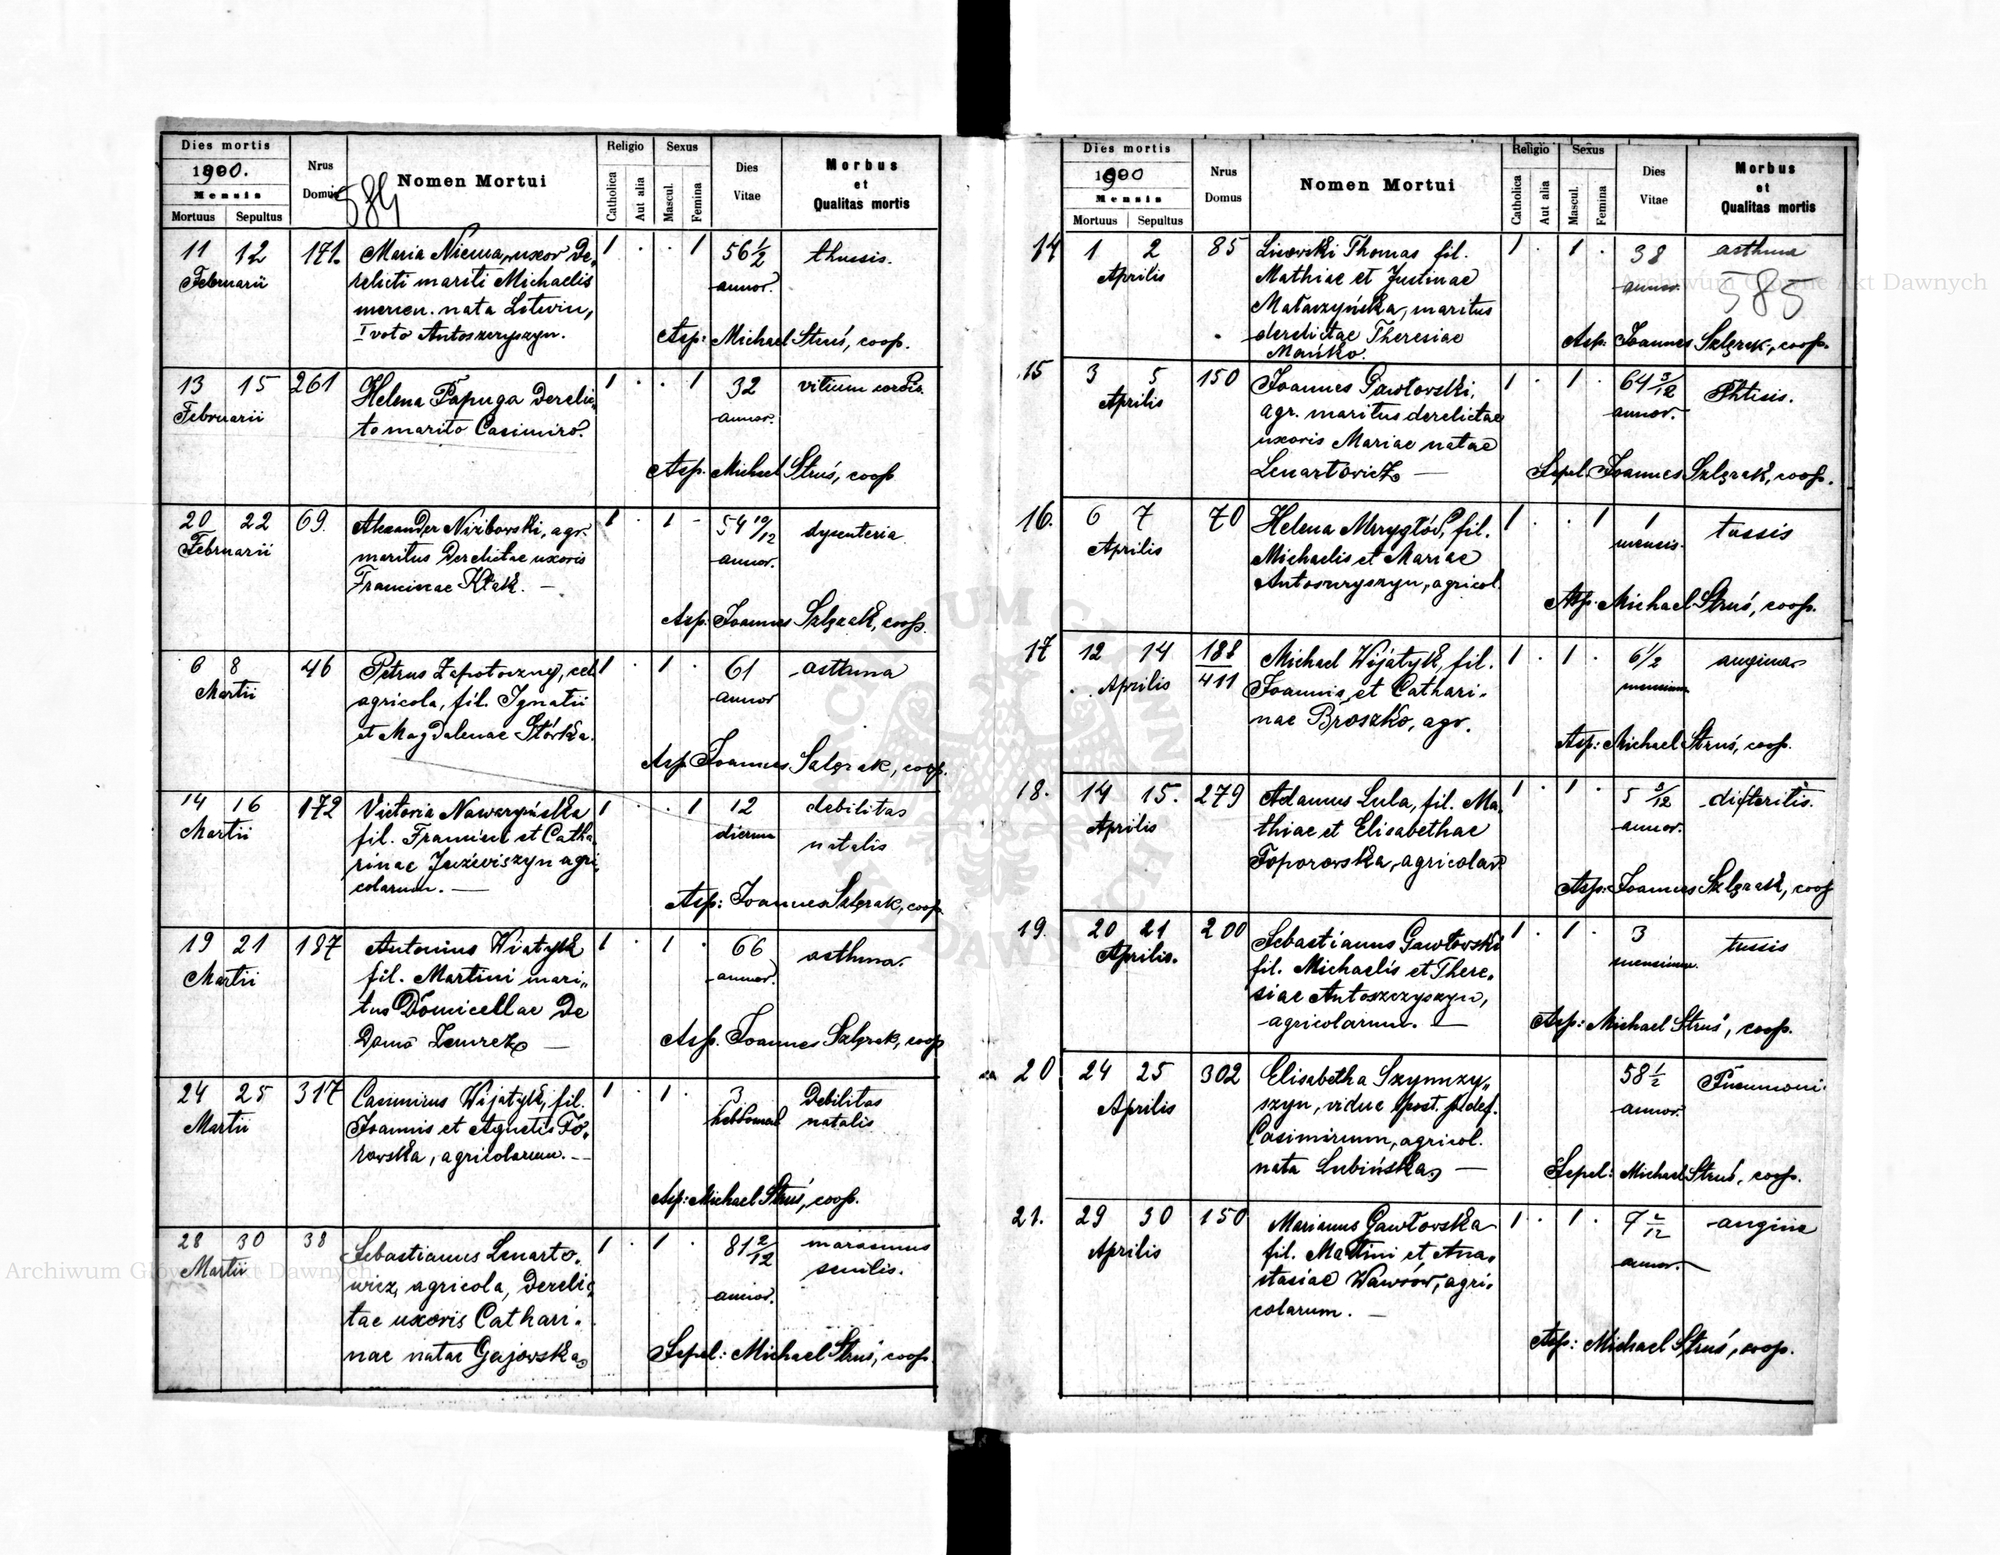 Dies mortis
1900.
Mensis
Mortuus Sepultus
Nrus
Domus
584
Nomen Mortui
Religio
Catholica
Aut alia
Sexus
Mascul.
Femina
Dies
Vitae
Morbus
et
Qualitas mortis
11 12 171 Maria Niema, uxor De,,
Februarii relicti mariti Michaelis
mercen. nata Litwin,
I voto Antoszczyszyn.
1 . . 1 56 1/2 thussis.
annor.
Asp: Michael Struś, coop.
13 15 261 Helena Papuga Derelic,,
Februarii to marito Casimiro.
1 . . 1 32 vitium cordis.
annor.
Asp. Michael Struś, coop
20 22 69. Alexander Niribowski, agr.
Februarii maritus Derelictae uxoris
Franciscae Kłak. —
1 . 1 - 54 10/12 dysenteria
annor.
Asp: Joannes Szlęzak, coop.
6 8 46 Petrus Zapotoczny, cel.
Martii agricola, fil. Ignatii
et Magdalenae Stórka.
1 . 1 . 61 asthma
annor
Asp Joannes Szlęzak, coop.
14 16 172 Victoria Nawaryńska
Martii fil. Francisci et Catha,,
rinae agri,,
colarum. —
1 . . 1 12 debilitas
dierum natalis
Asp: Joannes Szlęzak, coop
19 21 187 Antonius Wiatyk
Martii fil. Martini mari,,
tus Domicellae De
Domo Zemrez —
1 . 1 . 66 asthma.
annor.
Asp. Joannes Szlęzak, coop
24 25 317 Casimirus Wijatyk, fil.
Martii Joannis et Agnetis To,,
rowska, agricolarum. —
1 . 1 . 3 Debilitas
hebdomad natalis
Asp: Michael Struś, coop.
28 30 38 Sebastianus Lenarto,,
Martii wicz, agricola, Dereli,,
tae uxoris Cathari,,
nae natae Gajowska
1 . 1 . 81 2/12 marasmus
senilis.
annor.
Sepel: Michael Struś, coop.
Dies mortis
1900
Mensis
Mortuus Sepultus
Nrus
Domus
Nomen Mortui
Religio
Catholica
Aut alia
Sexus
Mascul.
Femina
Dies
Vitae
Morbus
et
Qualitas mortis
585
14 1 2 85 Thomas fil.
Aprilis Mathiae et Justinae
Mataczyńska, maritus
derelictae Theresiae
Mańko.
1 . 1 . 38 asthma
annor.
Asp: Joannes Szlęzak, coop.
15 3 5 150 Joannes Gawłowski,
Aprilis agr. maritus derelictae
uxoris Mariae natae
Lenartowicz —
1 . 1 . 64 3/12 Phtisis.
annor.
Sepel. Joannes Szlęzak, coop.
16. 6 7 70 Helena Mrygłód, fil.
Aprilis Michaelis et Mariae
Antoszczyszyn, agricol.
1 . . 1 1 tussis
mensis.
Asp. Michael Struś, coop.
17 12 14 188 Michael Wijatyk, fil.
Aprilis 411 Joannis et Cathari,,
nae Broszko, agr.
1 . 1 . 6 1/2 angina
mensium
Asp: Michael Struś, coop.
18. 14 15. 279 Adamus Lula, fil. Ma,,
Aprilis thiae et Elisabethae
Toporowska, agricolar.
1 . 1 . 5 3/12 difteritis.
annor.
Asp: Joannes Szlęzak, coop
19. 20 21 200 Sebastianus Gawłowski
Aprilis. fil. Michaelis et There,,
siae Antoszczyszyn,
agricolarum. —
1 . 1 . 3 tussis
mensium.
Asp: Michael Struś, coop.
20 24 25 302 Elisabetha Szymczy,,
Aprilis szyn, vidua post def.
Casimirum, agricol.
nata Lubińska, —
58 1/2 Pneumoni.
annor.
Sepel: Michael Struś, coop.
21. 29 30 150 Marianus Gawłowska
Aprilis fil. Martini et Ana,,
stasiae Wawrów, agri,,
colarum. —
1 . 1 . 7 2/12 angina
annor.
Asp: Michael Struś, coop.
Archiwum Główne Akt Dawnych
Archiwum Główne Akt Dawnych
ARCHIWUM GŁÓWNE AKT DAWNYCH